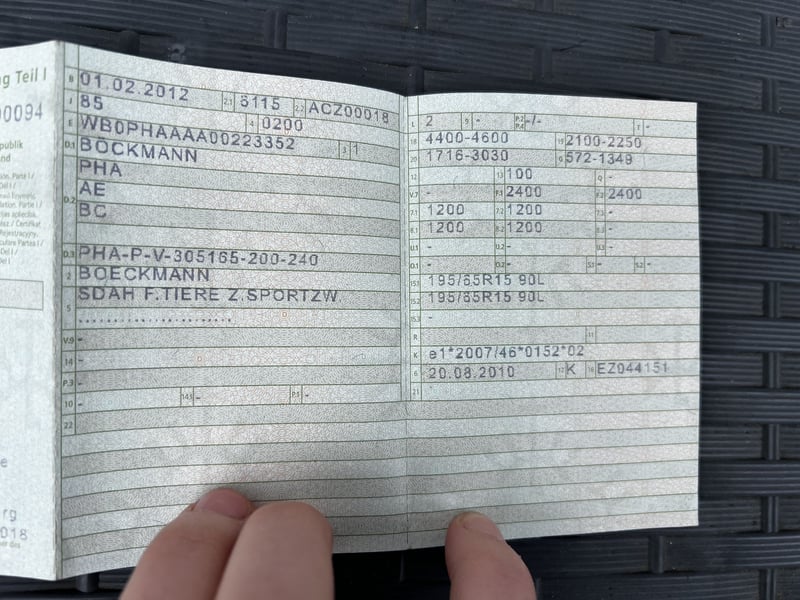 ng Teil I
00094
publik
nd
rg
018
B 01.02.2012 2.1 8115 2.2 ACZ00018
J 85 4 0200
E WB0PHAAAA00223352 3 1
D.1 BÖCKMANN
PHA
D.2 AE
BC
D.3 PHA-P-V-305165-200-240
2 BOECKMANN
5 SDAH F.TIERE Z.SPORTZW.
V.9 -
14 -
P.3 -
10 - 14.1 - P.5 -
22
L 2 9 - P.2 P.4 -/- T -
18 4400-4600 19 2100-2250
20 1716-3030 G 572-1349
12 - 13 100 Q -
V.7 - F.1 2400 F.2 2400
7.1 1200 7.2 1200 7.3 -
8.1 1200 8.2 1200 8.3 -
U.1 - U.2 - U.3 -
O.1 - O.2 - S.1 - S.2 -
15.1 195/65R15 90L
15.2 195/65R15 90L
15.3 -
R 11
K e1*2007/46*0152*02
6 20.08.2010 17 K 16 EZ044151
21